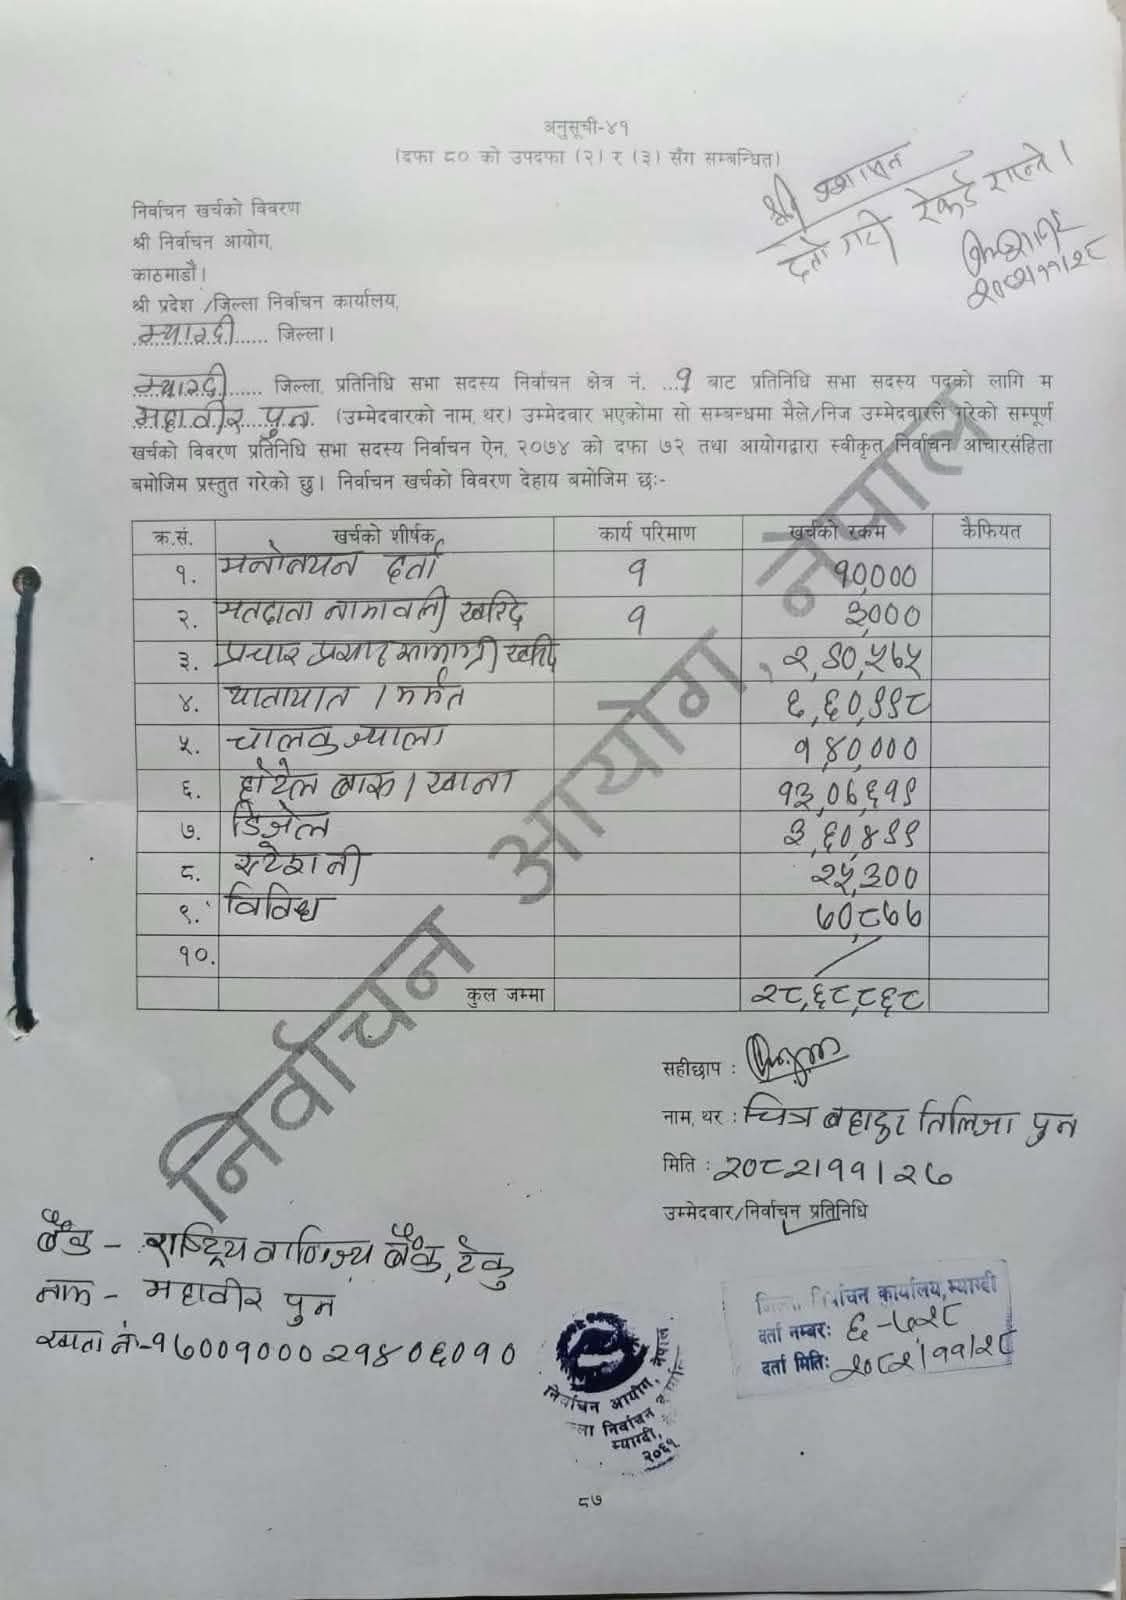 अनुसूची-४१
(दफा ८० को उपदफा (२) र (३) सँग सम्बन्धित)
श्री प्रशासन
दर्ता गरी रेकर्ड राख्ने।
२०८२।११।२८
निर्वाचन खर्चको विवरण
श्री निर्वाचन आयोग,
काठमाडौं।
श्री प्रदेश /जिल्ला निर्वाचन कार्यालय,
म्याग्दी जिल्ला।
म्याग्दी जिल्ला, प्रतिनिधि सभा सदस्य निर्वाचन क्षेत्र नं. १ बाट प्रतिनिधि सभा सदस्य पदको लागि म
महावीर पुन (उम्मेदवारको नाम, थर) उम्मेदवार भएकोमा सो सम्बन्धमा मैले/निज उम्मेदवारले गरेको सम्पूर्ण
खर्चको विवरण प्रतिनिधि सभा सदस्य निर्वाचन ऐन, २०७४ को दफा ७२ तथा आयोगद्वारा स्वीकृत निर्वाचन आचारसंहिता
बमोजिम प्रस्तुत गरेको छु। निर्वाचन खर्चको विवरण देहाय बमोजिम छः-
क्र.सं. खर्चको शीर्षक कार्य परिमाण खर्चको रकम कैफियत
१. मनोनयन दर्ता १ १०,०००
२. मतदाता नामावली खरिद १ ३,०००
३. प्रचार प्रसार सामाग्री खरिद
४. यातायात / मर्मत
५. चालक ज्याला
६. होटेल बास / खाना
७. डिजेल
८. स्टेशनरी २५,३००
९. विविध ७०,८७७
१०.
कुल जम्मा २८,६८,८६८
निर्वाचन आयोग, नेपाल
सहीछाप :
नाम, थर : चित्र बहादुर तिलिजा पुन
मिति : २०८२।११।२७
उम्मेदवार/निर्वाचन प्रतिनिधि
बैंक - राष्ट्रिय वाणिज्य बैंक, टेकु
नाम - महावीर पुन
खाता नं-
जिल्ला निर्वाचन कार्यालय, म्याग्दी
दर्ता नम्बर: ६-७२८
दर्ता मिति: २०८२/११/२८
निर्वाचन आयोग, नेपाल
म्याग्दी,
८७